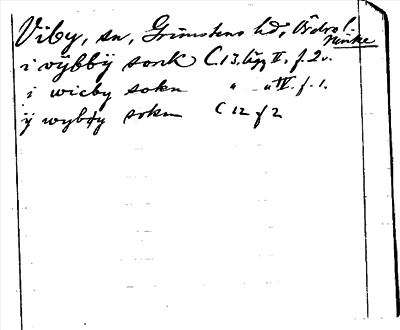 Viby, sn, Grimstens hd, Ördro l.
Närike
i vÿbbÿ sonk C.13. lägg II. f. 2v.
i wicby sokn " " IV. f. 1.
ÿ wybÿ sokn C 12 f 2